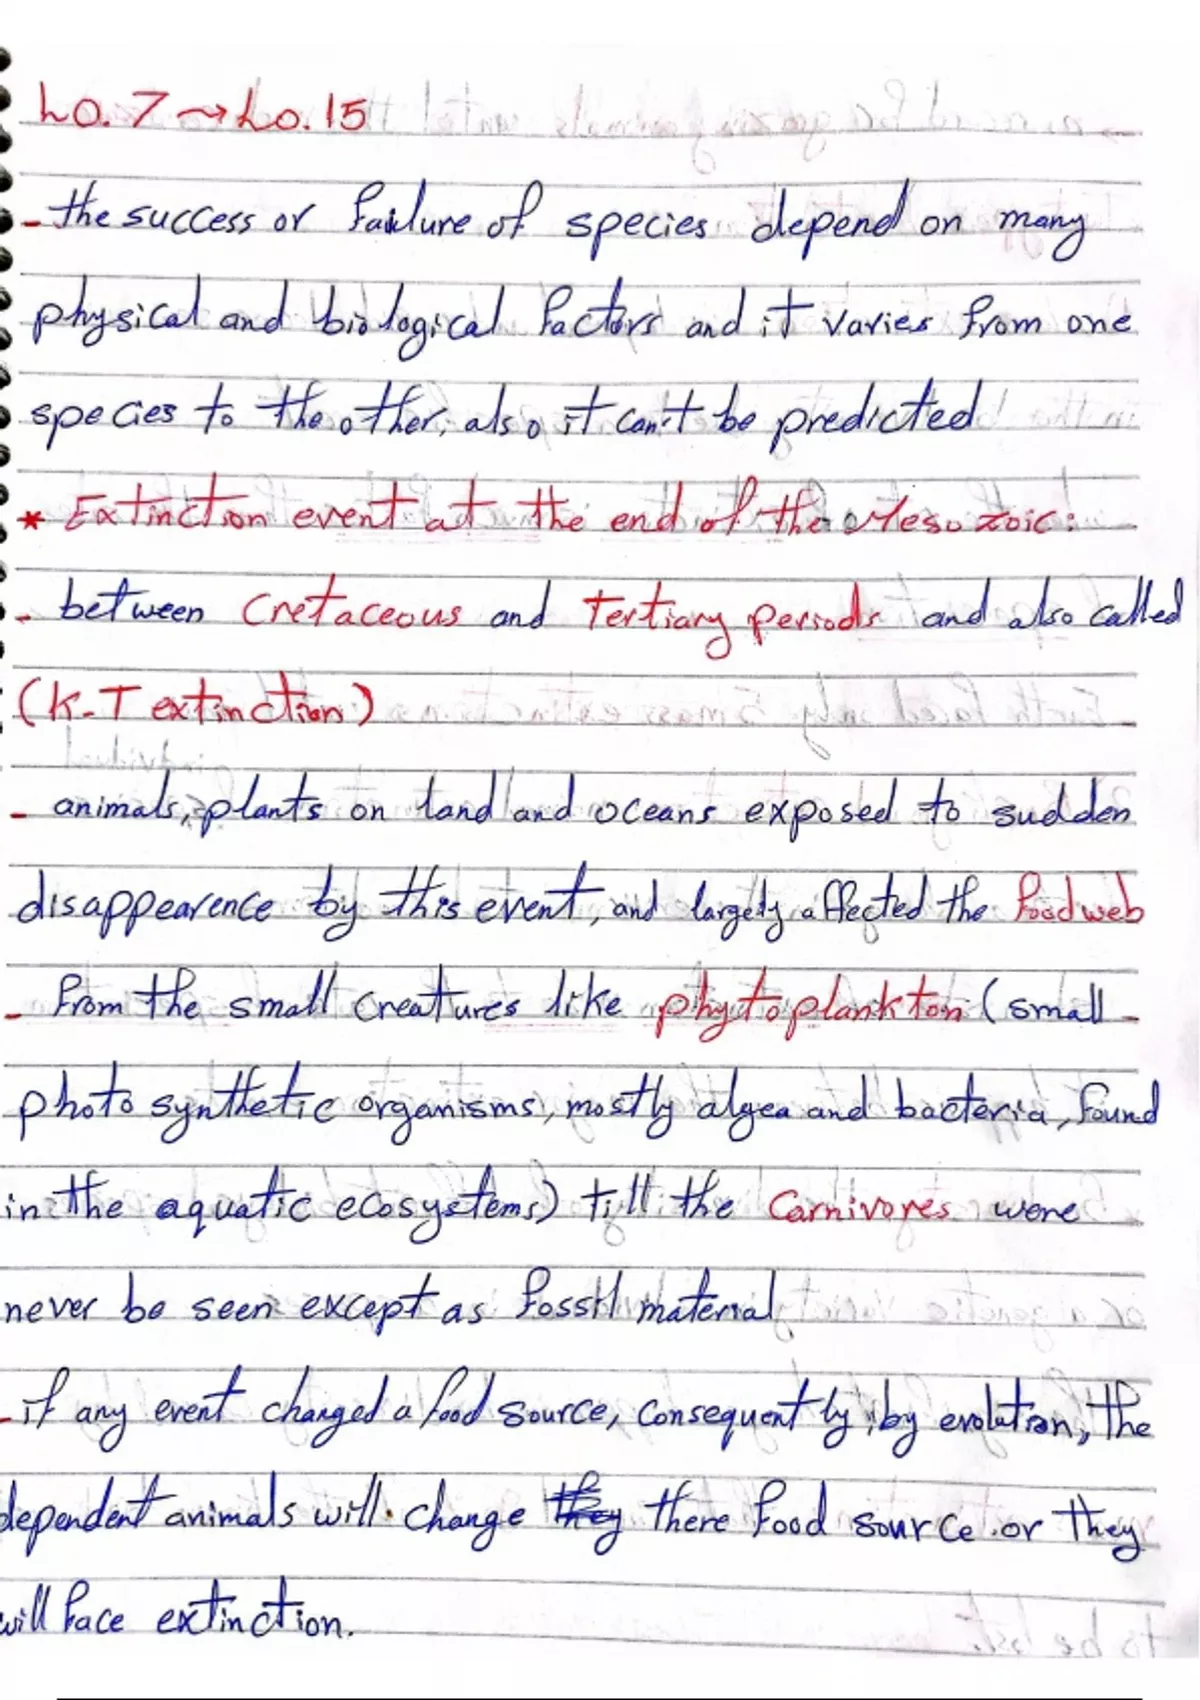 LO. 7 → LO. 15
- the success or failure of species depend on many
physical and biological factors and it varies from one
species to the other, also it can't be predicted
* Extinction event at the end of the Mesozoic:
- between Cretaceous and Tertiary periods and also called
(K-T extinction)
- animals, plants on land and oceans exposed to sudden
disappearence by this event, and largely affected the food web
- From the small creatures like phytoplankton (small
photosynthetic organisms, mostly algea and bacteria, found
in the aquatic ecosystems) till the Carnivores were
never be seen except as fossil material
- if any event changed a food source, consequently, by evolution, the
dependent animals will change there food source or they
will face extinction.